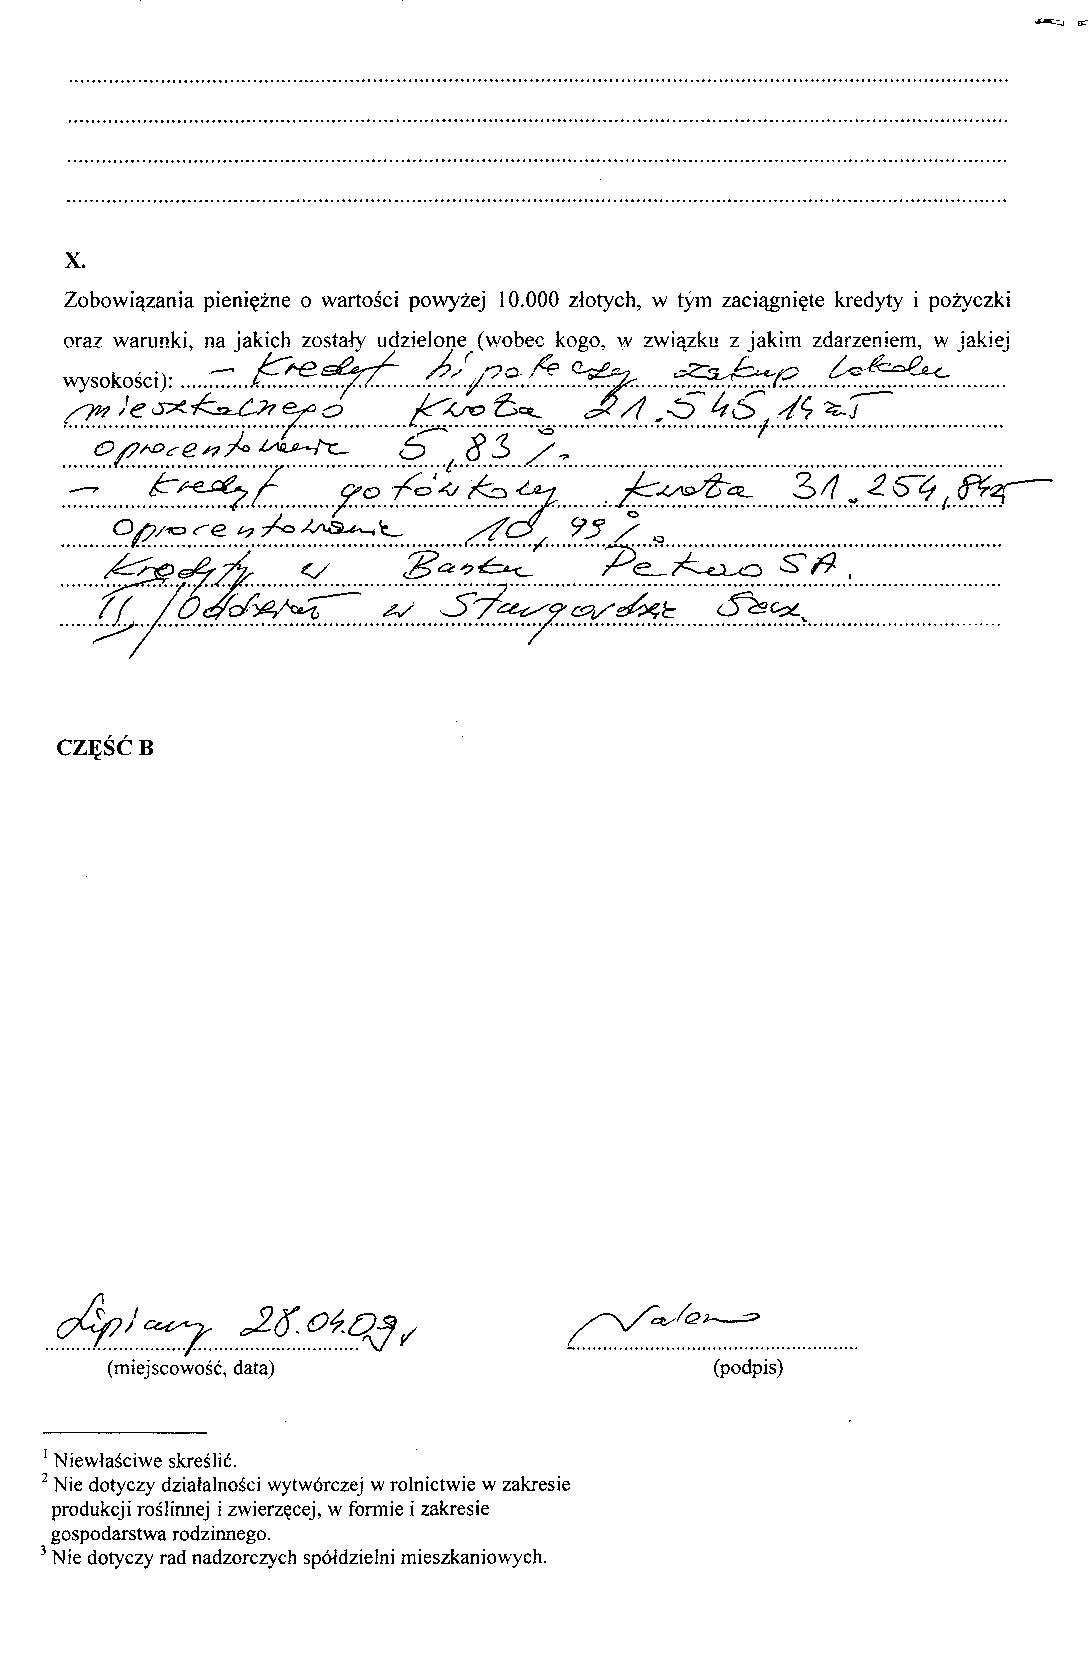 X.
Zobowiązania pieniężne o wartości powyżej 10.000 złotych, w tym zaciągnięte kredyty i pożyczki
oraz warunki, na jakich zostały udzielone (wobec kogo, w związku z jakim zdarzeniem, w jakiej
wysokości): – Kredyt hipoteczny zakup lokalu
mieszkalnego Kwota 21.545,14 zł
oprocentowanie 5,83 %
– Kredyt gotówkowy kwota 31.254,84 zł
Oprocentowanie 10,99 %.
Kredyty w Banku Pekao SA.
II/Oddział w Stargardzie Szcz.
CZĘŚĆ B
Lipiany 28.04.09r
(miejscowość, data) (podpis)
1 Niewłaściwe skreślić.
2 Nie dotyczy działalności wytwórczej w rolnictwie w zakresie
produkcji roślinnej i zwierzęcej, w formie i zakresie
gospodarstwa rodzinnego.
3 Nie dotyczy rad nadzorczych spółdzielni mieszkaniowych.